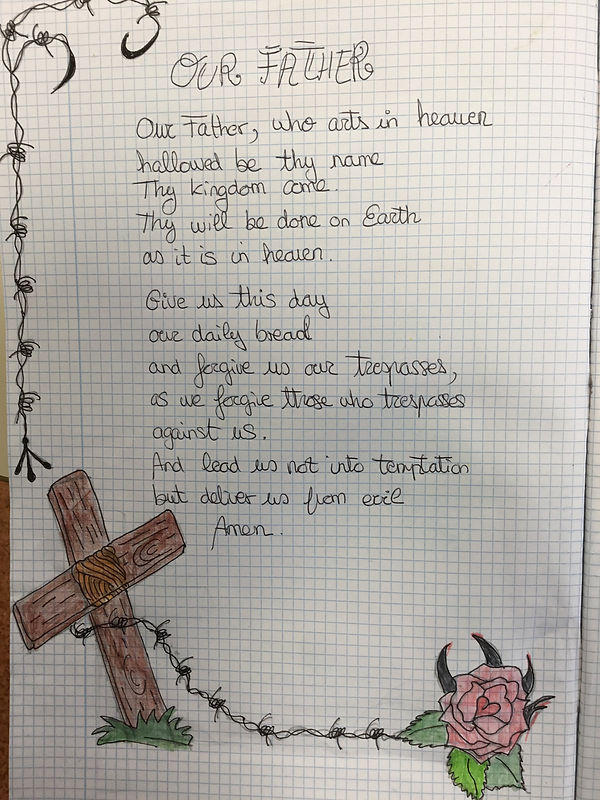 OUR FATHER
Our Father, who arts in heaven
hallowed be thy name
Thy kingdom come.
Thy will be done on Earth
as it is in heaven.
Give us this day
our daily bread
and forgive us our trespasses,
as we forgive those who trespasses
against us.
And lead us not into temptation
but deliver us from evil
Amen.